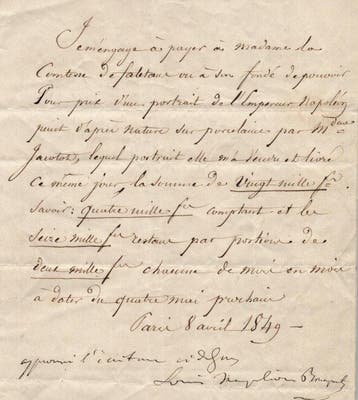 Je m'engage à payer à madame la
Comtesse de ou à son fondé de pouvoir
Pour prix d'un portrait de l'Empereur Napoléon
peint d'après nature sur porcelaine par Mdme
Jacotot, lequel portrait elle m'a vendu et livré
ce même jour, la somme de Vingt mille frs
savoir: quatre mille frs comptant et les
Seize mille frs restant par portions de
deux mille frs chacune de mois en mois
à dater du quatre mai prochain
Paris 8 avril 1849 —
approuvé l'écriture ci dessus
Louis Napoléon Bonaparte